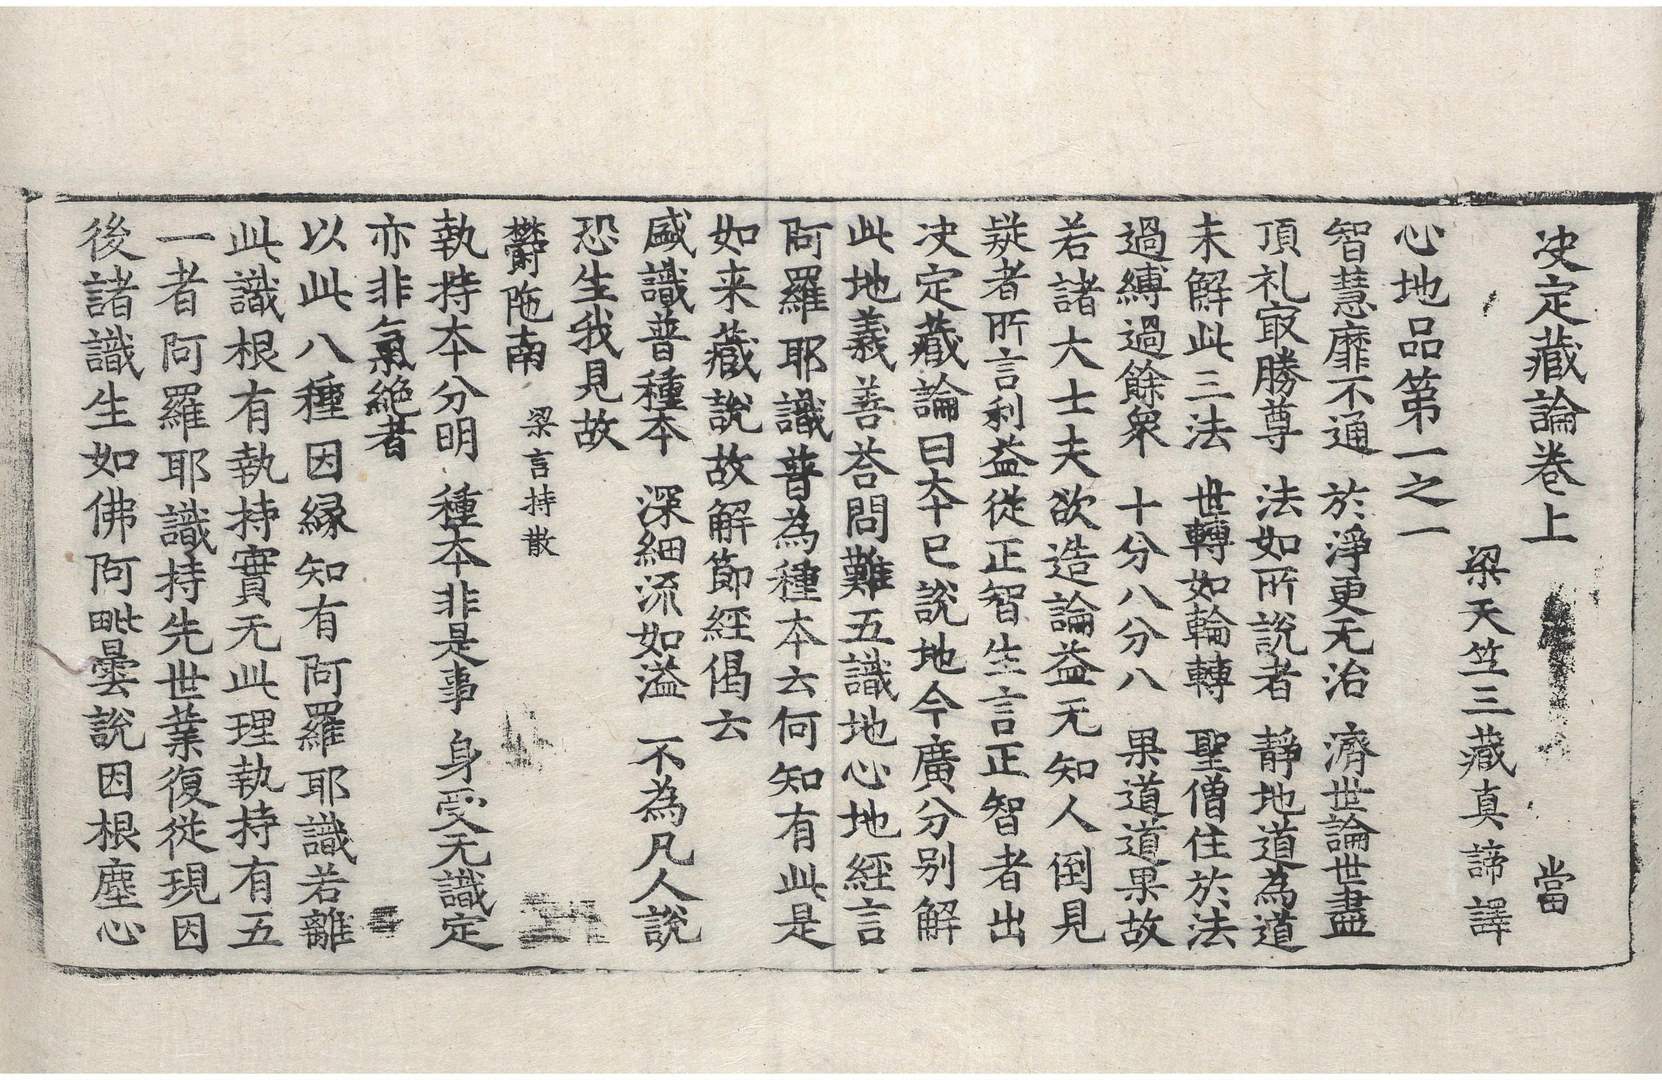 决定藏論卷上　當
梁天竺三藏真諦譯
心地品第一之一
智慧靡不通　於淨更无治　濟世論世盡
頂礼㝡勝尊　法如所說者　靜地道為道
未解此三法　世轉如輪轉　聖僧住於法
過縛過餘衆　十分八分八　果道道果故
若諸大士夫欲造論益无知人倒見
疑者所言利益從正智生言正智者出
决定藏論曰本已說地今廣分別解
此地義善荅問難五識地心地經言
阿羅耶識普為種本云何知有此是
如来藏說故解節經偈云
盛識普種本　深細流如溢　不為凡人說
恐生我見故
欝陁南　梁言持散
執持本分明　種本非是事　身受无識定
亦非氣絶者
以此八種因縁知有阿羅耶識若離
此識根有執持實无此理執持有五
一者阿羅耶識持先世業復從現因
後諸識生如佛阿毗曇說因根塵心